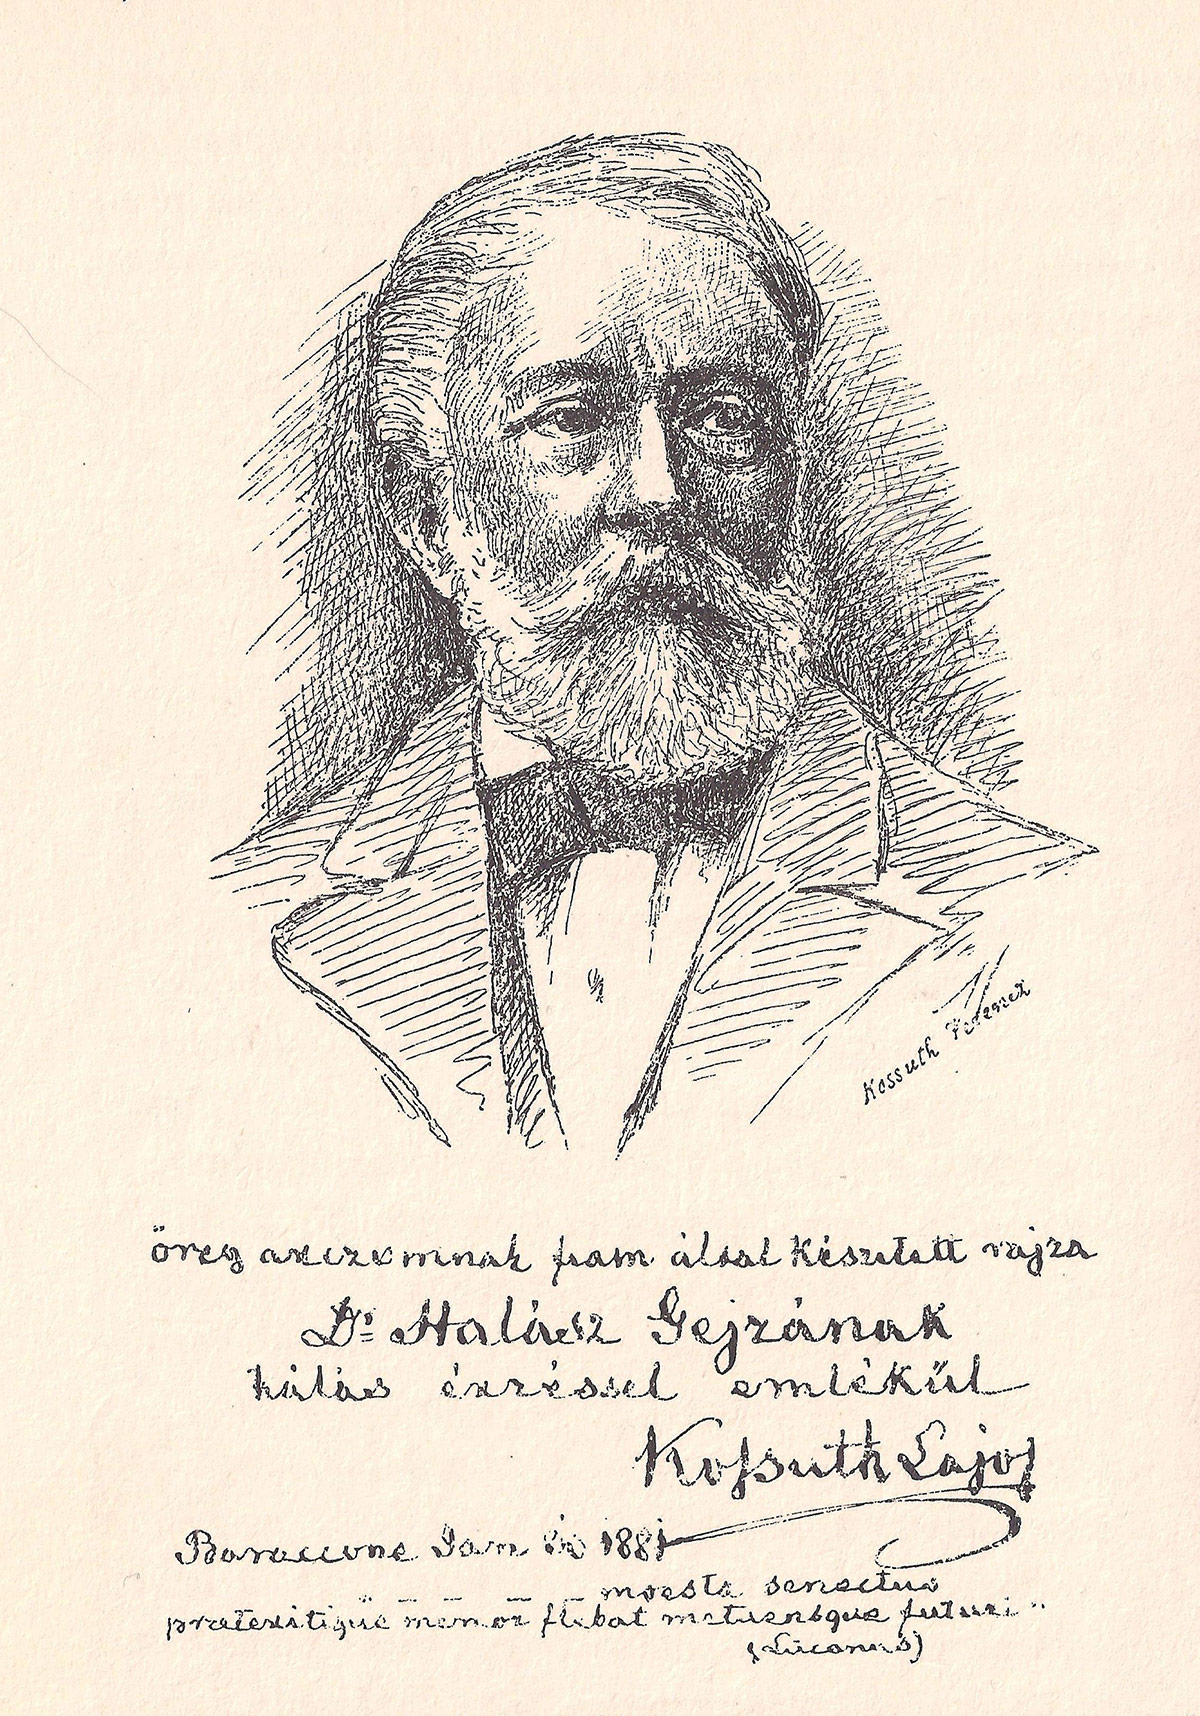 Kossuth Ferencz
öreg arczomnak fiam által készitett rajza
Dr Halász Gejzának
hálás érzéssel emlékűl
Kossuth Lajos
Baraccone Jan 1881
moesta senectus
praeteritique memor flebat metuensque futuri"
(Lucanus)